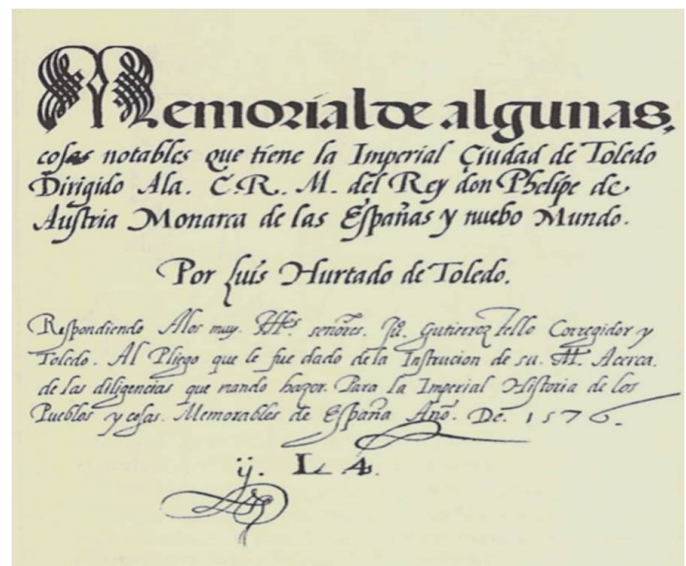 Memorial de algunas,
cosas notables que tiene la Imperial Ciudad de Toledo
Dirigido Ala. C. R. M. del Rey don Phelipe de
Austria Monarca de las Españas y nuebo Mundo.
Por Luis Hurtado de Toledo.
Respondiendo Alos muy. Illes señores. Ju. Gutierrez Tello Corregidor y
Toledo. Al Pliego que le fue dado de la Instrucion de su. M. Acerca.
de las diligencias que mando hazer. Para la Imperial Historia de los
Pueblos y cosas. Memorables de España Año. De. 1576.
ij. L